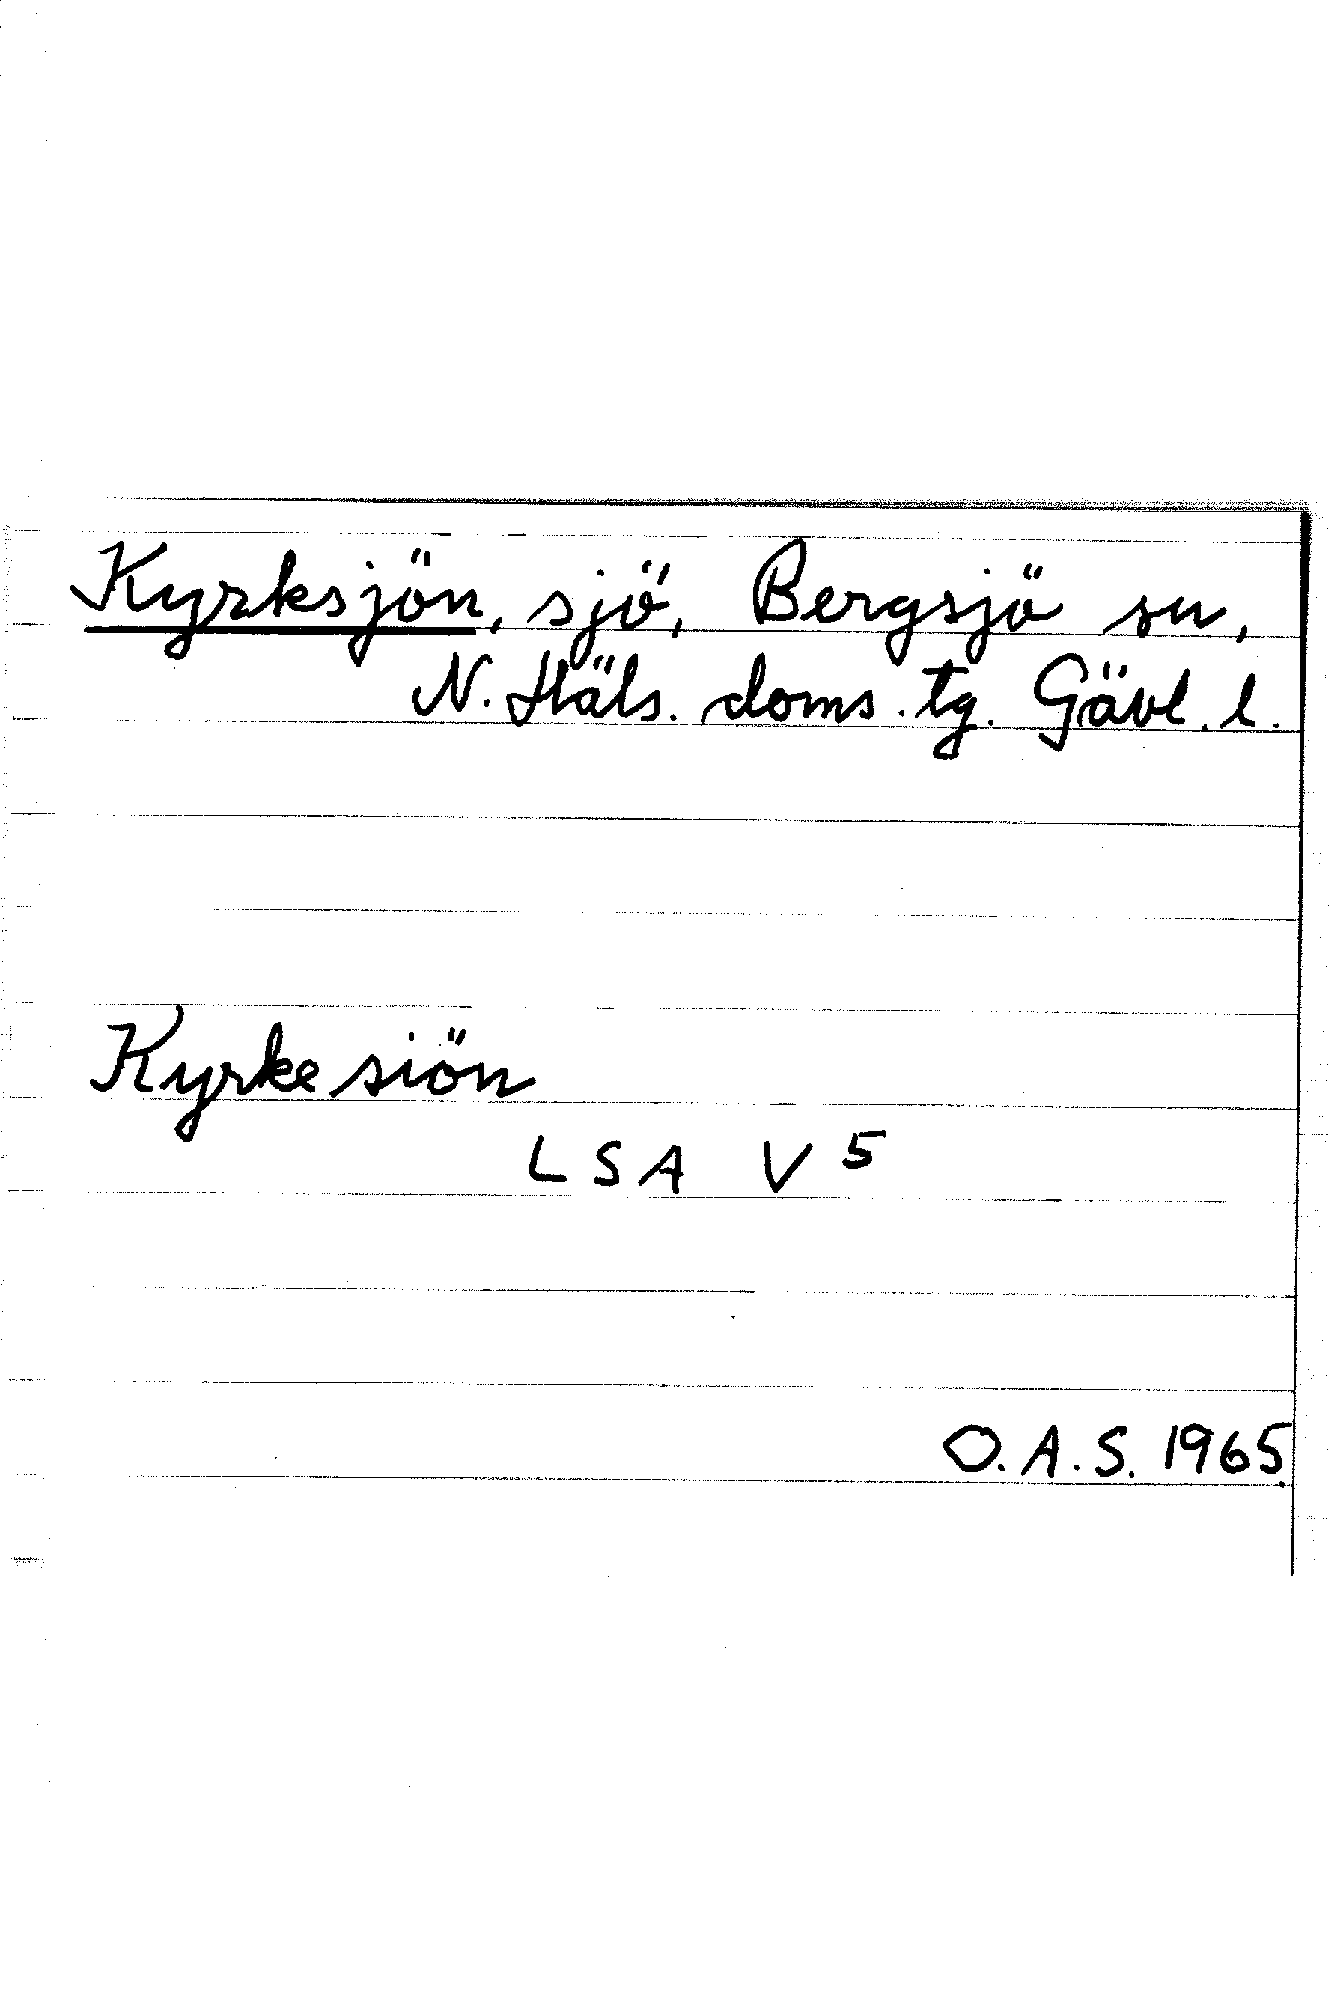 Kyrksjön, sjö, Bergsjö sn,
N. Häls. doms. tg. Gävl. l.
Kyrke siön
LSA V 5
O.A.S. 1965.